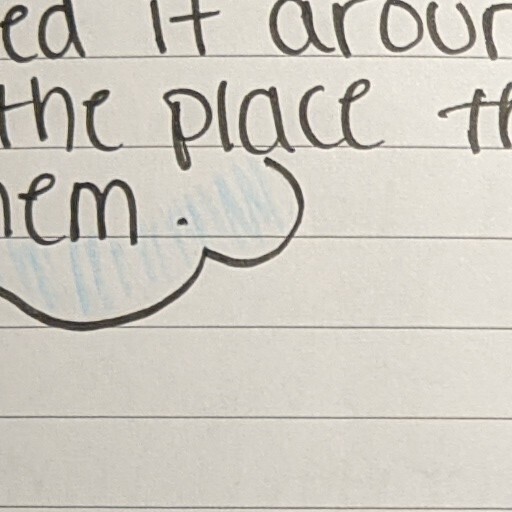 ed it aroun
the place th
hem.